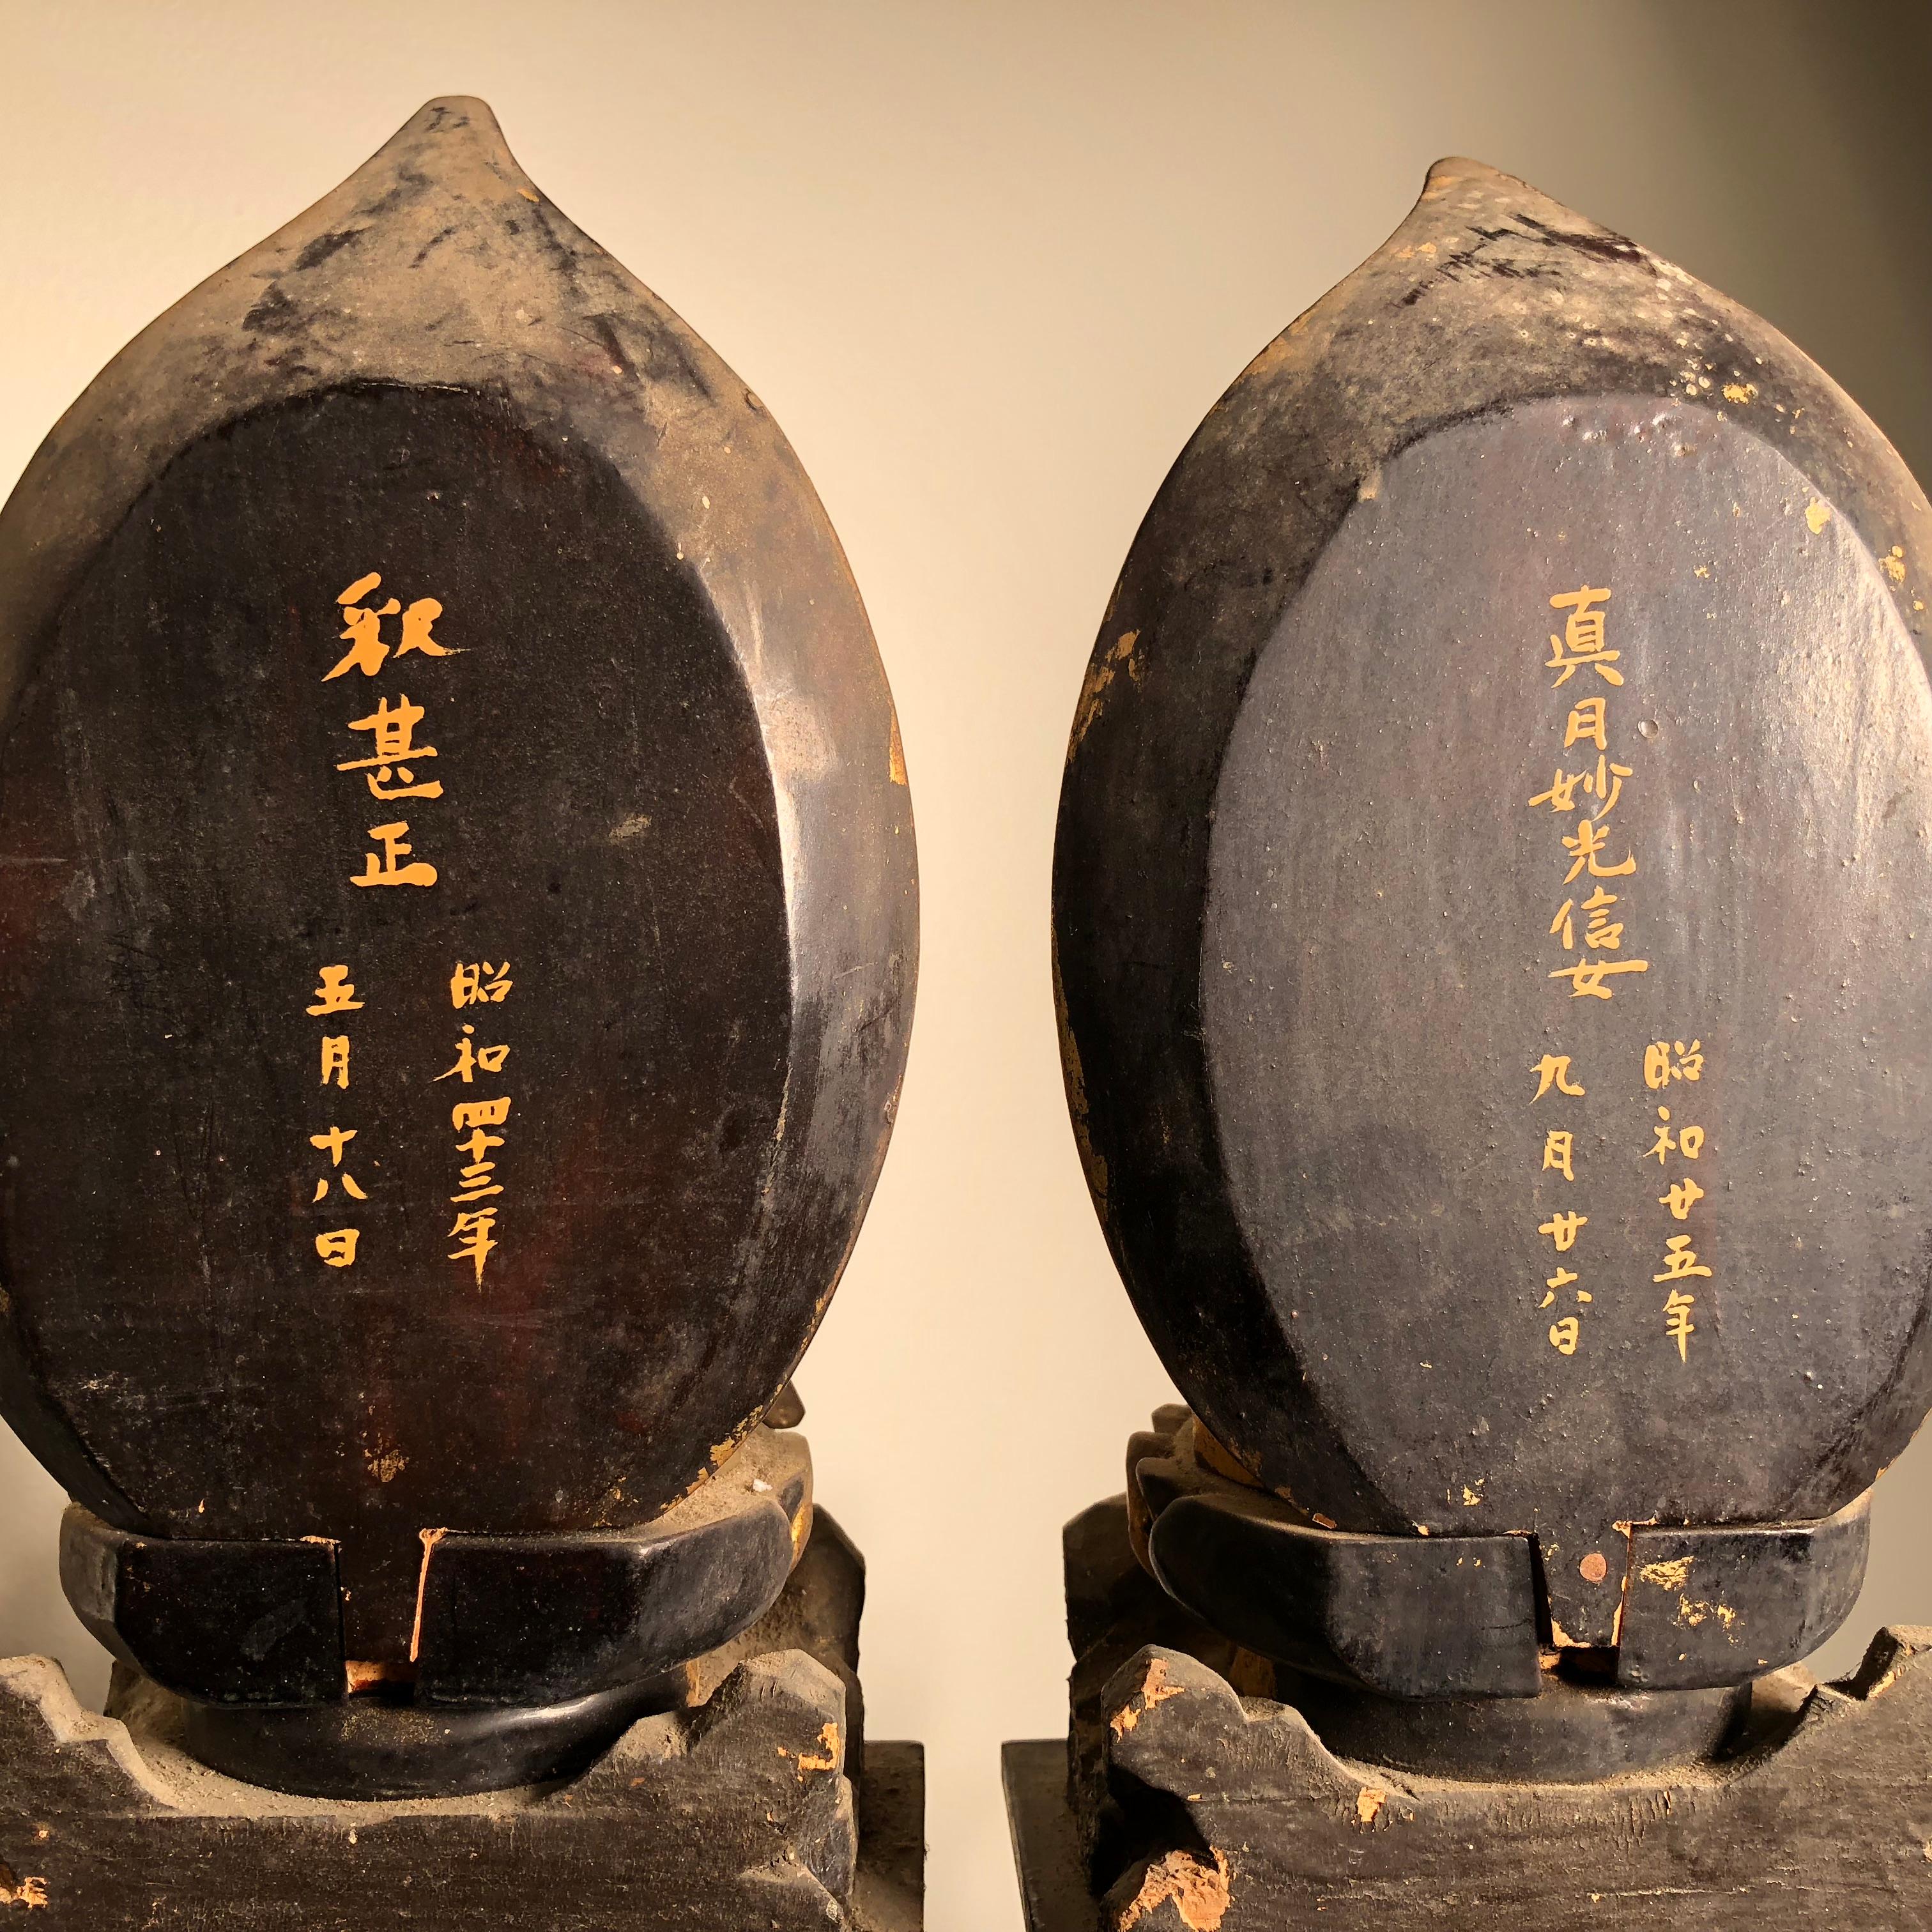 釈甚正
昭和四十三年
五月十八日
真月妙光信女
昭和廿五年
九月廿六日